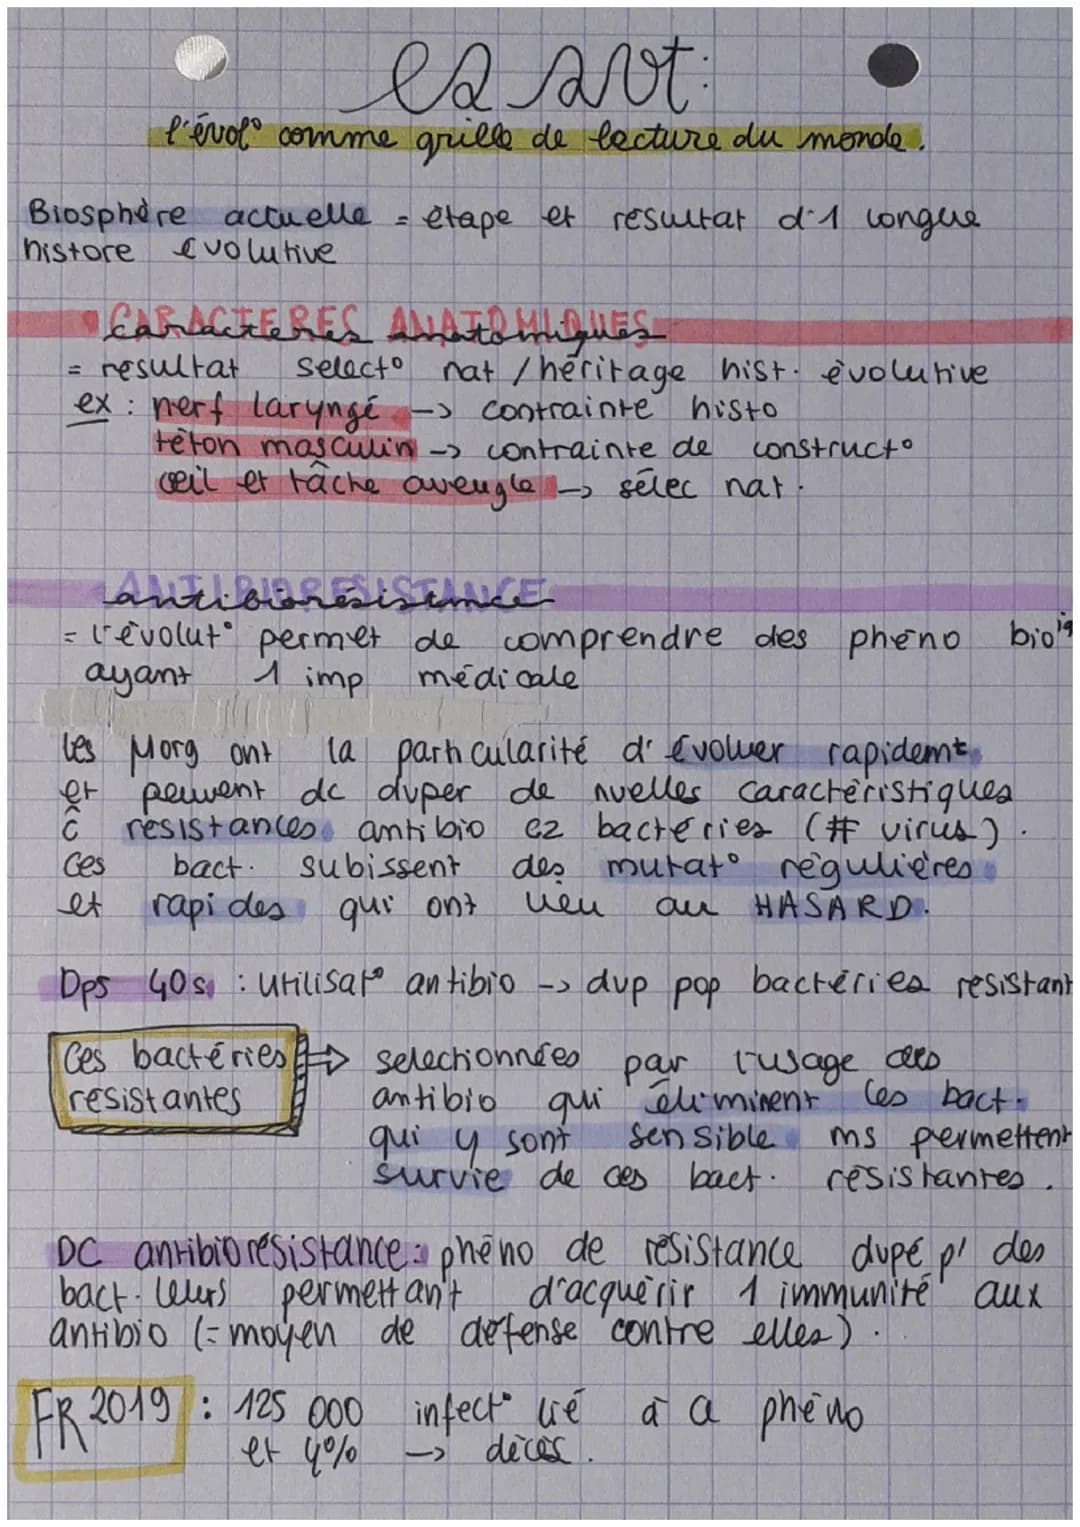 es svt:
l'évol° comme grille de lecture du monde.
Biosphère actuelle = étape et résultat d'1 longue
histore évolutive
CARACTERES ANATOMIQUES
caractères anatomiques
= résultat selec° nat / héritage hist. évolutive
ex : nerf laryngé -> contrainte histo
téton masculin -> contrainte de construct°
œil et tâche aveugle -> sélec nat.
ANTIBIORESISTANCE
antibiorésistance
= l'évolut° permet de comprendre des phéno bioiq
ayant 1 imp médicale
les Morg ont la particularité d'évoluer rapidemt
et peuvent dc dvper de nvelles caractéristiques
ĉ résistances antibio ez bactéries (# virus).
Ces bact. subissent des mutat° régulières
et rapides qui ont lieu au HASARD.
Dps 40s : utilisat° antibio -> dvp pop bactéries résistant
Ces bactéries => selectionnées par l'usage des
résistantes antibio qui éliminent les bact.
qui y sont sensible ms permettent
survie de ces bact. résistantes.
DC antibiorésistance : phéno de résistance dvpé p' des
bact. leurs permettant d'acquérir 1 immunité aux
antibio (= moyen de défense contre elles).
FR 2019 : 125 000 infect° lié à ce phéno
et 4% -> décès.